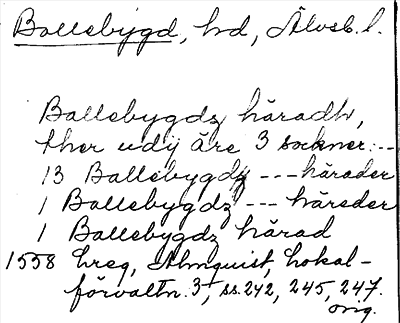 Ballebygd, hd, Älvsb. l.
Ballebygdz häradh,
ther udij äre 3 sockner ---
13 Ballebygdz --- härader
1 Ballebygdz --- häreder
1 Ballebygdz härad
1558 hreg, Almquist, Lokal-
förvaltn. 3, ss. 242, 245, 247.
orig.